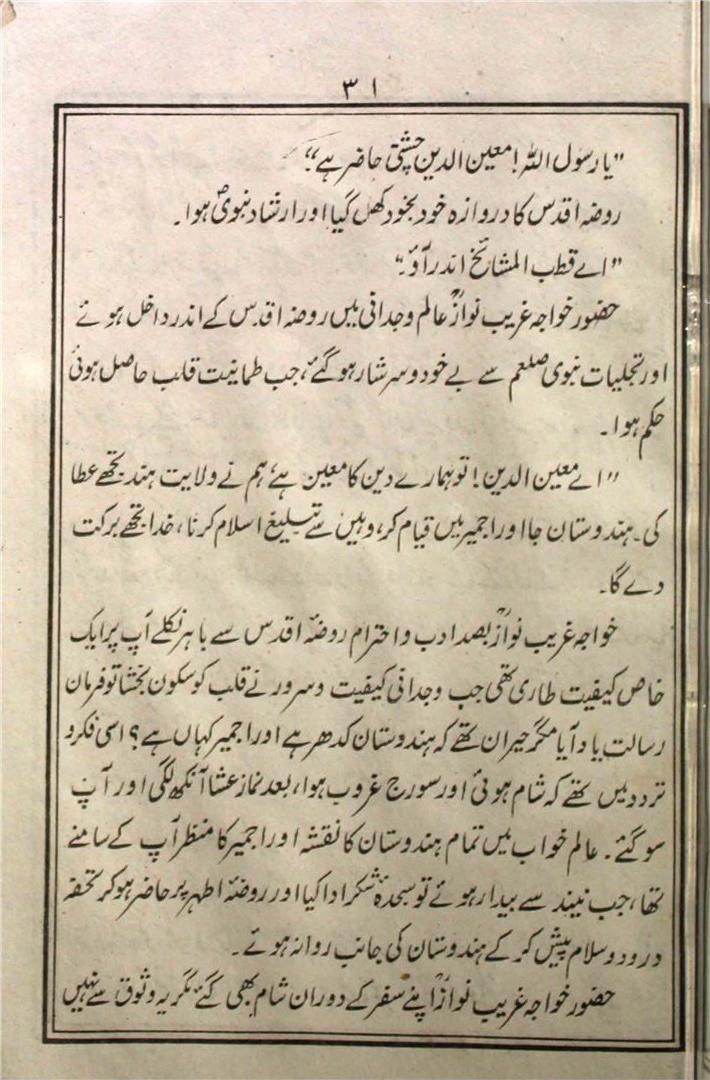 ۳۱
"یا رسول اللہ! معین الدین چشتی حاضر ہے"۔
روضہ اقدس کا دروازہ خود بخود کھل گیا اور ارشاد نبویؐ ہوا۔
"اے قطب المشائخ اندر آؤ۔"
حضور خواجہ غریب نوازؒ عالم وجدانی میں روضہ اقدس کے اندر داخل ہوئے
اور تجلیات نبوی صلعم سے بے خود و سرشار ہو گئے، جب طمانیت قلب حاصل ہوئی
حکم ہوا۔
"اے معین الدین! تو ہمارے دین کا معین ہے، ہم نے ولایت ہند تجھے عطا
کی۔ ہندوستان جا اور اجمیر میں قیام کر، وہیں سے تبلیغ اسلام کرنا، خدا تجھے برکت
دے گا۔
خواجہ غریب نوازؒ بصد ادب و احترام روضۂ اقدس سے باہر نکلے آپ پر ایک
خاص کیفیت طاری تھی جب وجدانی کیفیت و سرور نے قلب کو سکون بخشا تو فرمان
رسالت یاد آیا مگر حیران تھے کہ ہندوستان کدھر ہے اور اجمیر کہاں ہے؟ اسی فکر و
تردد میں تھے کہ شام ہوئی اور سورج غروب ہوا، بعد نماز عشا آنکھ لگی اور آپ
سو گئے۔ عالم خواب میں تمام ہندوستان کا نقشہ اور اجمیر کا منظر آپ کے سامنے
تھا، جب نیند سے بیدار ہوئے تو سجدۂ شکر ادا کیا اور روضۂ اطہر پر حاضر ہو کر تحفہ
درود و سلام پیش کر کے ہندوستان کی جانب روانہ ہوئے۔
حضور خواجہ غریب نوازؒ اپنے سفر کے دوران شام بھی گئے مگر یہ وثوق سے نہیں